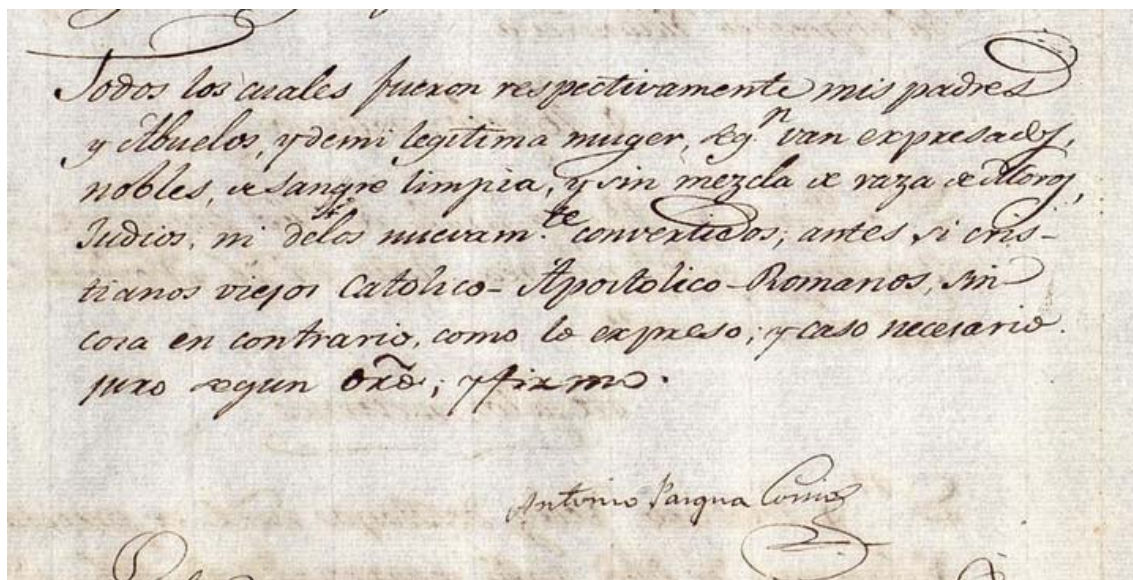 Todos los cuales fueron respectivamente mis padres
y Abuelos, y de mi legitima muger, segn. van expresados,
nobles, de sangre limpia, y sin mezcla de raza de Moros,
Judios, ni delos nuevamte. convertidos; antes si cris-
tianos viejos Catolico-Apostolico-Romanos, sin
cosa en contrario, como lo expreso; y caso necesario
juro segun Ordñ; y firmo.
Antonio Pasqua